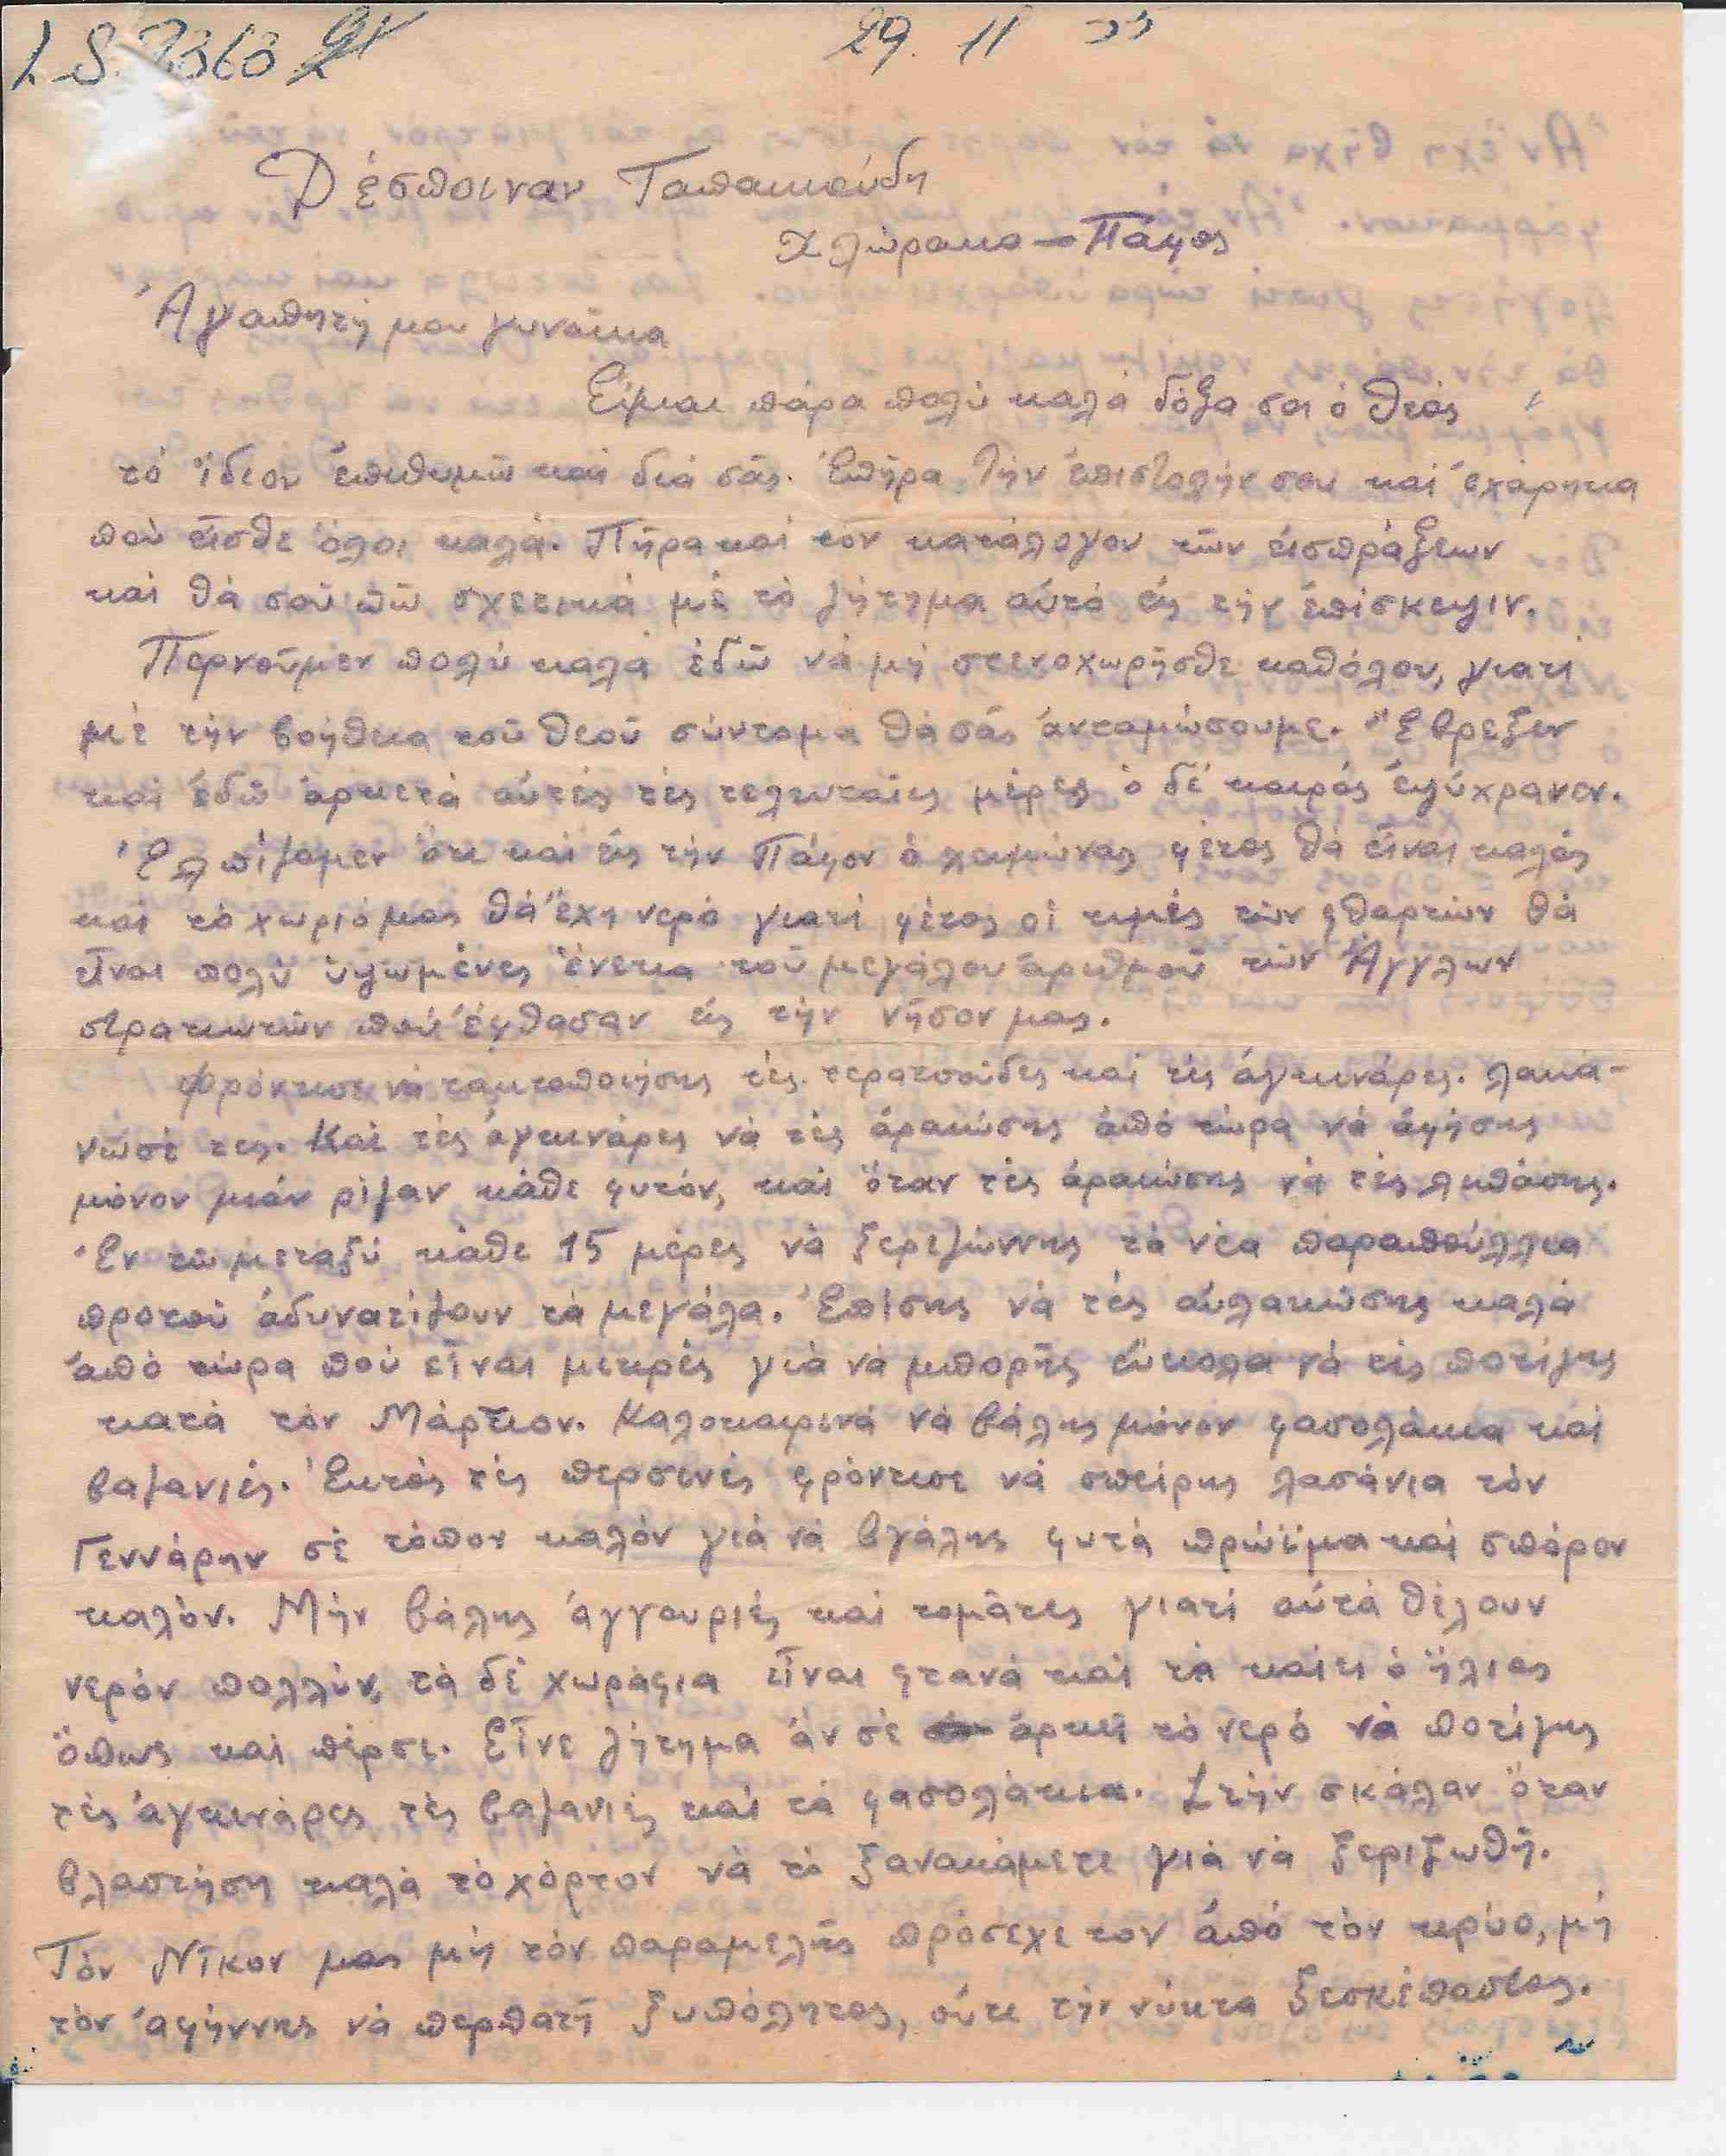 29. 11 55
Δέσποιναν Ταπακούδη
Χλώρακα – Πάφος
Ἀγαπητή μου γυναῖκα
Εἶμαι πάρα πολύ καλά δόξα σοι ὁ Θεός
τό ἴδιον ἐπιθυμῶ καί διά σᾶς. Ἐπῆρα τήν ἐπιστολήν σου καί ἐχάρηκα
πού εἶσθε ὅλοι καλά. Πῆρα καί τόν κατάλογον τῶν εἰσπράξεων
καί θά σοῦ πῶ σχετικά μέ τό ζήτημα αὐτό εἰς τήν ἐπίσκεψιν.
Περνοῦμεν πολύ καλά ἐδῶ νά μή στενοχωρῆσθε καθόλου, γιατί
μέ τήν βοήθεια τοῦ Θεοῦ σύντομα θά σᾶς ἀνταμώσουμε. Ἔβρεξεν
καί ἐδῶ ἀρκετά αὐτές τές τελευταῖες μέρες ὁ δέ καιρός ἐψύχρανεν.
Ἐλπίζομεν ὅτι καί εἰς τήν Πάφον ὁ χειμώνας φέτος θά εἶναι καλός
καί τό χωριό μας θά ἔχη νερό γιατί φέτος οἱ τιμές τῶν φθαρτῶν θά
εἶναι πολύ ὑψωμένες ἕνεκα τοῦ μεγάλου ἀριθμοῦ τῶν Ἄγγλων
στρατιωτῶν πού ἔφθασαν εἰς τήν νῆσον μας.
Φρόντισε νά τακτοποιήσης τές τερατσοῦδες καί τές ἀγκινάρες. λακά-
νωσέ τες. Καί τές ἀγκινάρες νά τές ἀραιώσης ἀπό τώρα νά ἀφήσης
μόνον μιάν ρίζαν κάθε φυτόν, καί ὅταν τές ἀραιώσης νά τές λιπάσης.
Ἐν τῶ μεταξύ κάθε 15 μέρες νά ξεριζώννης τά νέα παραπούλλια
προτοῦ ἀδυνατίζουν τά μεγάλα. Ἐπίσης νά τές αὐλακώσης καλά
ἀπό τώρα πού εἶναι μικρές γιά νά μπορῆς εὔκολα νά τές ποτίζης
κατά τόν Μάρτιον. Καλοκαιρινά νά βάλης μόνον φασολάκια καί
βαζανιές. Ἐκτός τές περσινές φρόντισε νά σπείρης λασάνια τόν
Γεννάρην σέ τόπον καλόν γιά νά βγάλης φυτά πρώϊμα καί σπόρον
καλόν. Μήν βάλης ἀγγουριές καί τομᾶτες γιατί αὐτά θέλουν
νερόν πολλύν, τά δέ χωράφια εἶναι φτανά καί τά καίει ὁ ἥλιος
ὅπως καί πέρσι. Εἶνε ζήτημα ἄν σέ ἀρκεῖ τό νερό νά ποτίζης
τές ἀγκινάρες τές βαζανιές καί τά φασολάκια. Στήν σκάλαν ὅταν
βλαστήση καλά τό χόρτον νά τό ξανακάμετε γιά νά ξεριζωθῆ.
Τόν Νῖκον μας μή τόν παραμελῆς πρόσεχε τον ἀπό τόν κρύο, μή
τόν ἀφήννης νά περπατῆ ξυπόλητος, οὔτε τήν νύκτα ξεσκέπαστος.